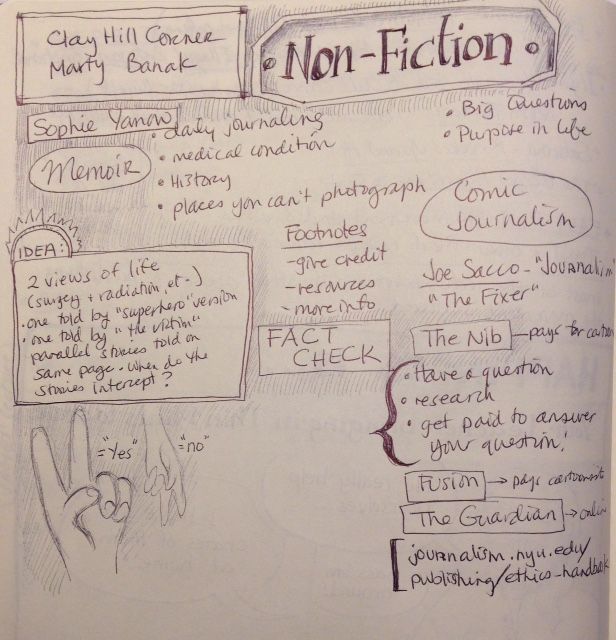 Clay Hill Corner
Marty Banak
Non-Fiction
Sophie Yanow
• daily journaling
• medical condition
• History
• places you can't photograph
Memoir
• Big Questions
• Purpose in life
Comic
Journalism
IDEA:
2 views of life
(surgery + radiation, etc.)
• one told by "superhero" version
• one told by "the victim"
parallel stories told on
same page. When do the
stories intercept?
Footnotes
- give credit
- resources
- more info
FACT
CHECK
Joe Sacco - "Journalism"
"The Fixer"
The Nib → pays for cartoon
• Have a question
• research
• get paid to answer
your question!
Fusion → pays cartoonist
The Guardian → online
journalism.nyu.edu/
publishing/ethics-handbook
= "Yes"
= "no"